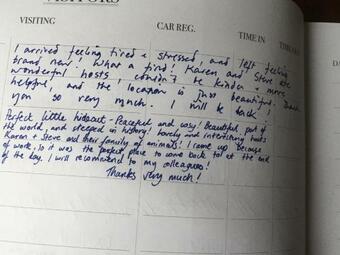 VISITORS
VISITING CAR REG. TIME IN TIME
I arrived feeling tired & stressed, and left feeling
brand new! What a find! Karen and Steve are
wonderful hosts, couldn't be kinder & more
helpful, and the location is just beautiful. Thank
you so very much. I will be back!
Perfect little hideout - Peaceful and cosy! Beautiful part of
the world, and steeped in history! Lovely and interesting hosts
Karen & Steve and their family of animals! I came up because
of work, so it was the perfect place to come back to at the end
of the day. I will recommend to my colleagues!
Thanks very much!